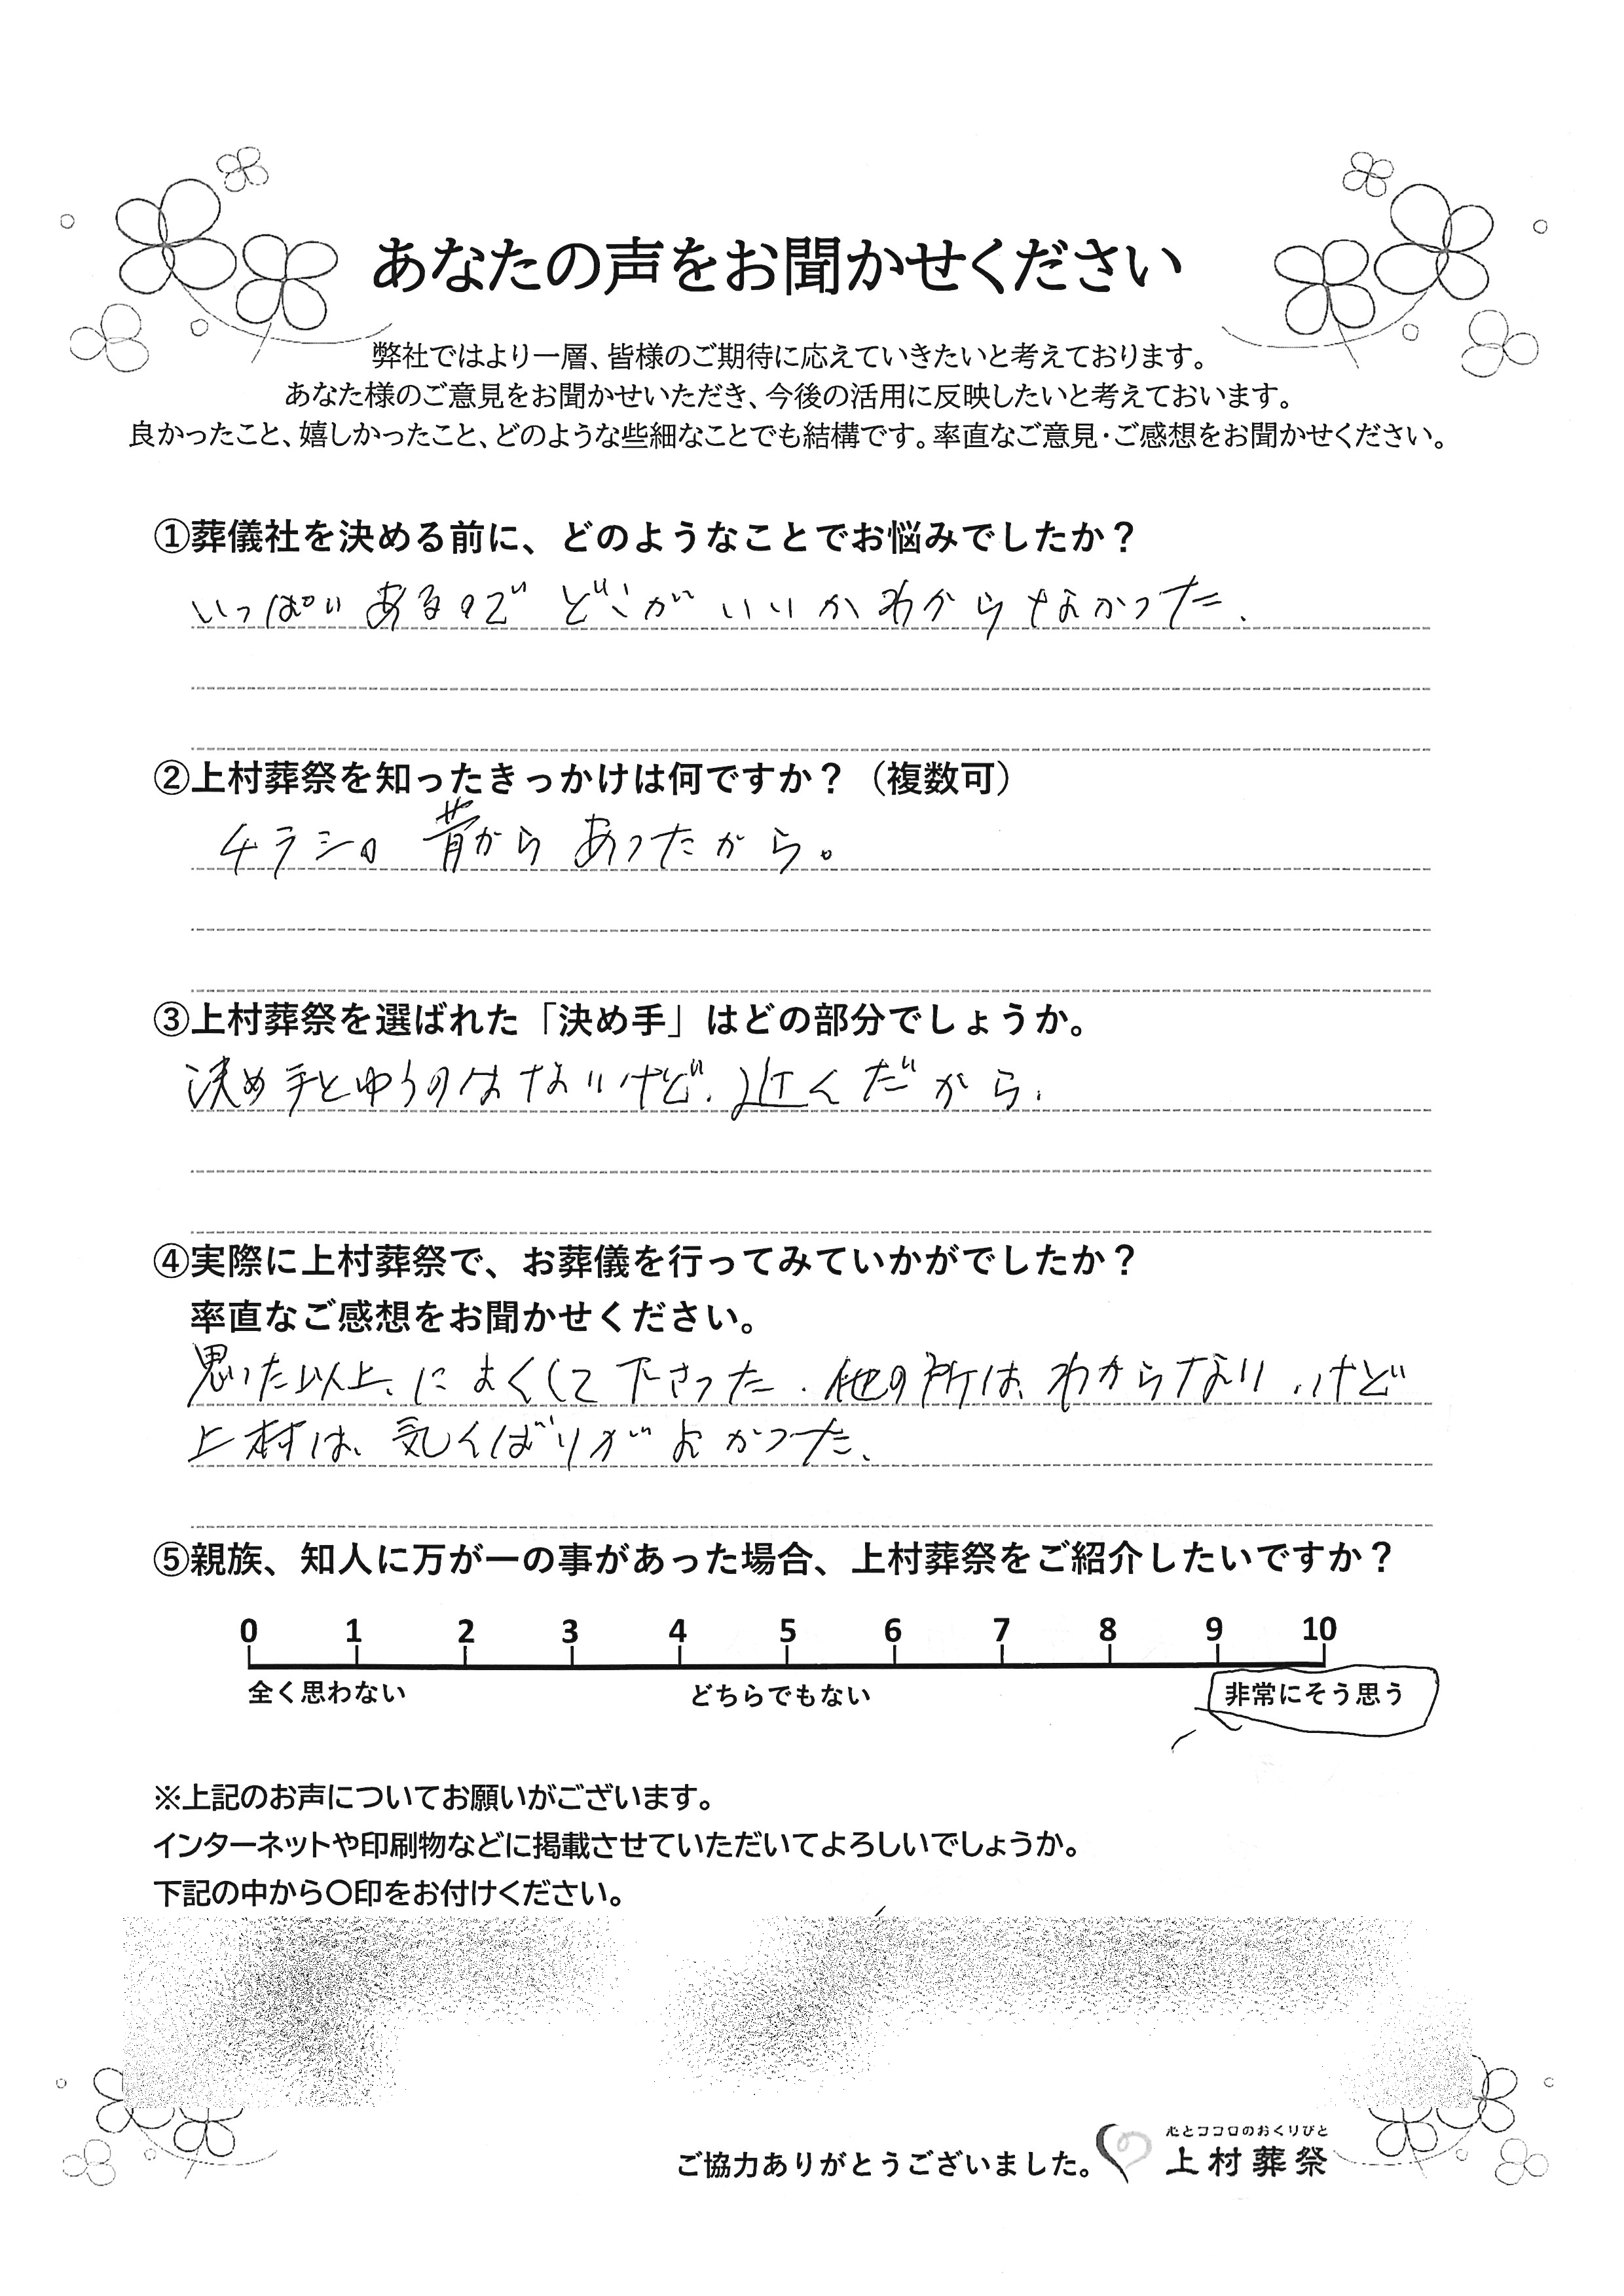 あなたの声をお聞かせください
弊社ではより一層、皆様のご期待に応えていきたいと考えております。
あなた様のご意見をお聞かせいただき、今後の活用に反映したいと考えておいます。
良かったこと、嬉しかったこと、どのような些細なことでも結構です。率直なご意見・ご感想をお聞かせください。
①葬儀社を決める前に、どのようなことでお悩みでしたか？
いっぱい あるので どこが いいか わからなかった.
②上村葬祭を知ったきっかけは何ですか？（複数可）
チラシの 昔から あったから。
③上村葬祭を選ばれた「決め手」はどの部分でしょうか。
決め手とゆうのはないけど. 近くだから.
④実際に上村葬祭で、お葬儀を行ってみていかがでしたか？
率直なご感想をお聞かせください。
思った以上に よくして下さった. 他の所は わからない.けど
上村は、気くばりが よかった.
⑤親族、知人に万が一の事があった場合、上村葬祭をご紹介したいですか？
0 1 2 3 4 5 6 7 8 9 10
全く思わない どちらでもない 非常にそう思う
※上記のお声についてお願いがございます。
インターネットや印刷物などに掲載させていただいてよろしいでしょうか。
下記の中から〇印をお付けください。
心とココロのおくりびと
ご協力ありがとうございました。 上村葬祭